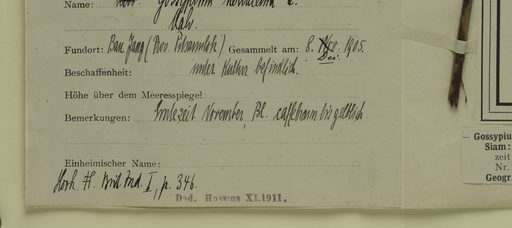 Name: Gossypium herbaceum L.
Malv.
Fundort: Ban Jang (Prov. Pitsanulok) Gesammelt am: 8. Nov. 1905.
Dec.
Beschaffenheit: unter Kultur befindlich.
Höhe über dem Meeresspiegel:
Bemerkungen: Erntezeit November, Bl. caffebraun bis gelblich
Einheimischer Name:
Hook. Fl. Brit. Ind. I, p. 346.
Ded. Hosseus XI.1911.
Gossypiu
Siam:
zeit
Nr.
Geogr.